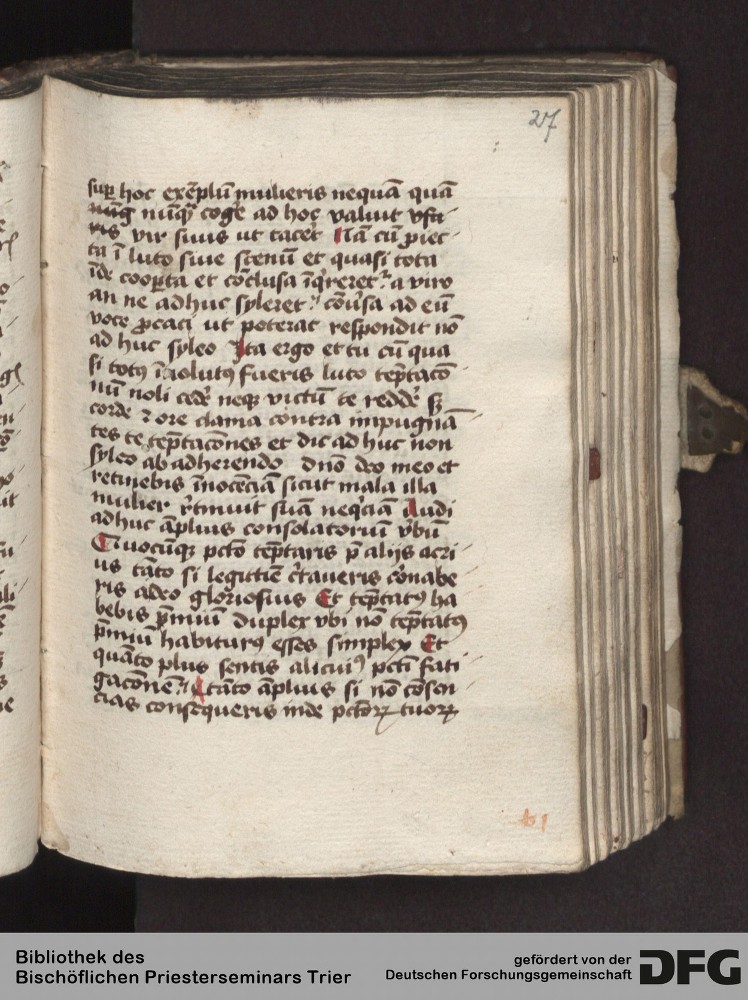 27
suꝑ hoc exēplū mulieris nequā quā
nūqꝫ cogē ad hoc valuit vſu
ris vir suus ut tacēt Nā cū ꝓiec
ta ī luto siue stenū et quasi tota
īde cooꝑta et cōclusa īq̄reret a viro
an ne adhuc syleret cōu̓sa ad eū
voce ꝓcaci ut poterat respondit nō
ad huc syleo Ita ergo et tu cū qua
si totꝰ īuolutꝰ fueris luto tēptacō
nū noli cedē neqꝫ victū te reddē sꝫ
corde ⁊ ore clama contra impugnā
tes te tēptacōnes et dic ad huc non
syleo ab adherendo dnō deo meo et
retinebis īnocēciā sicut mala illa
mulier rētinuit suā neqͥciā Audi
adhuc āplius consolatoriū v̓bū
Quocūqꝫ pctō tēptaris p̄ alijs acri
us tāto si legittīe cērtaueris cōnabe
ris adeo gloriosius Et tēptatꝰ ha
bebis p̄miū duplex vbi nō tēptatꝰ
p̄miū habiturꝰ esses simplex Et
quāto plus sentis alicuiꝰ pctī fati
gacōnē tāto āplius si nō cōsen
cias consequeris inde pctōꝝ tuoꝝ
b1
Bibliothek des
Bischöflichen Priesterseminars Trier
gefördert von der
Deutschen Forschungsgemeinschaft
DFG